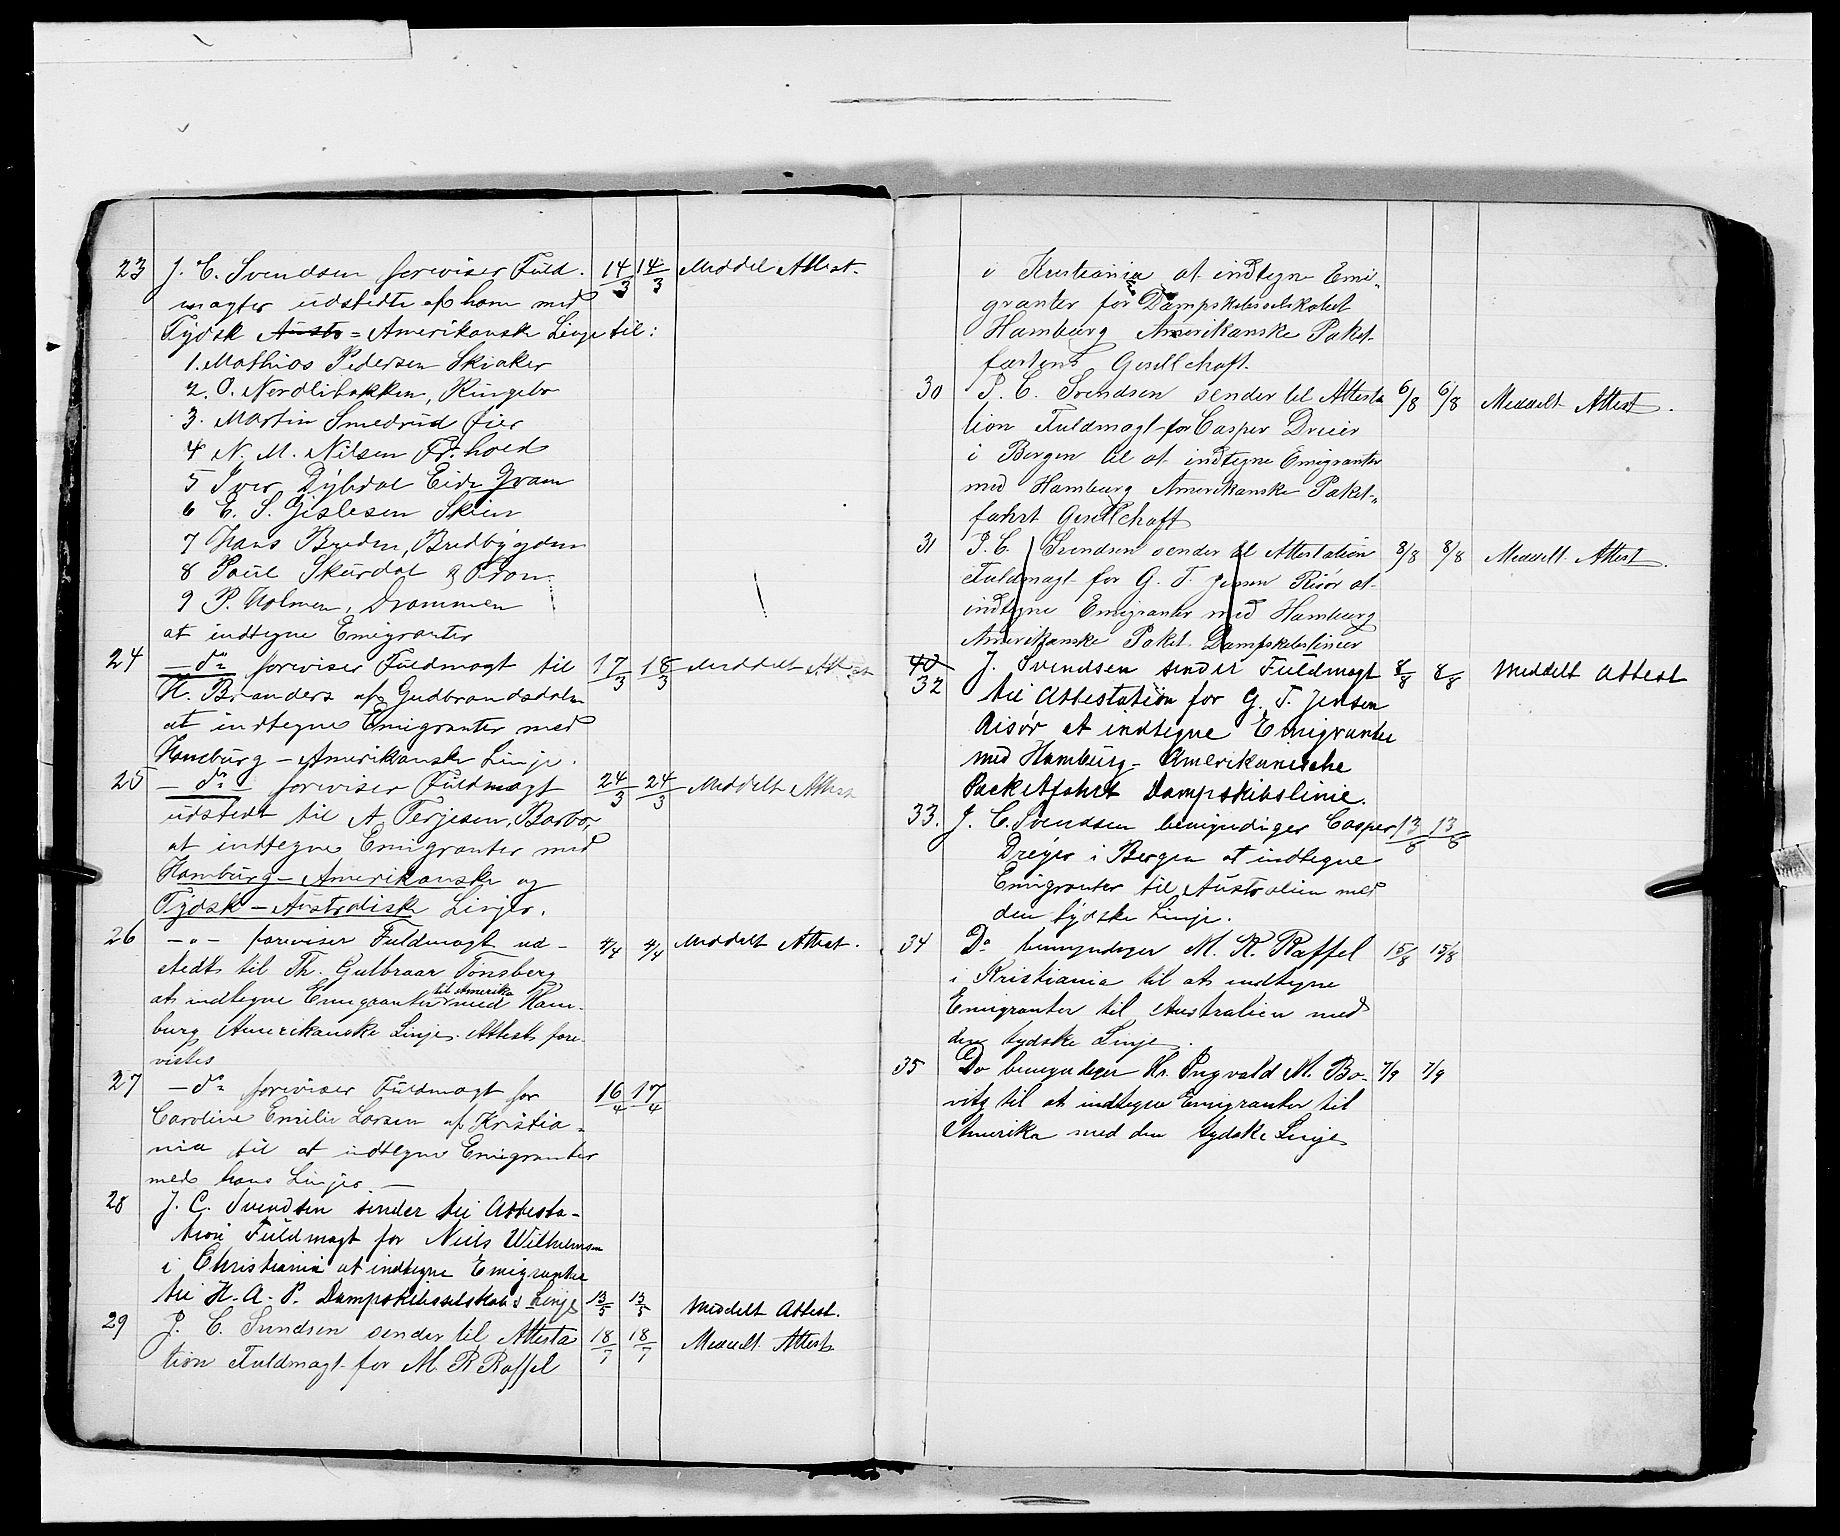 23 J. C. Svendsen foreviser Fuld- 14/3 14/3 Meddel Attest.
magter udstedte af ham med
Tydsk Austr = Amerikansk Linje til:
1. Mathias Pedersen Skiaker
2. O. Nordlibakken, Ringebo
3. Martin Smedrud Øier
4 N. M. Nilsen Fr.hald
5 Iver Dybdal Eide Gram
6 E. S. Gislesen Skien
7 Hans Breden, Bredbygden
8 Paul Skurdal Fron
9 P. Holmen, Drammen
at indtegne Emigranter
24 - do foreviser Fuldmagt til 17/3 18/3 Meddelt Attest
H. Branders af Gudbrandsdalen
at indtegne Emigranter med
Hamburg - Amerikanske Linje.
25 - do foreviser Fuldmagt 24/3 24/3 Meddelt Attest
udstedt til A Terjesen, Barbo,
at indtegne Emigranter med
Hamburg - Amerikanske og
Tydsk - Australiske Linjer.
26 - " - foreviser Fuldmagt ud- 4/4 4/4 Meddelt Attest.
stedt til Th. Gulbraar Tönsberg
at indtegne Emigranter til Amerika med Ham-
burg Amerikanske Linje. Attest fore-
vistes
27 - do foreviser Fuldmagt for 16/4 17/4
Caroline Emilie Larsen af Kristia-
nia til at indtegne Emigranter
med hans Linjer -
28 J. C. Svendsen sender til Attesta-
tion Fuldmagt for Niels Wilhelmsen
i Christiania at indtegne Emigranter
til H. A. P. Dampskibsselskabs Linje 13/5 13/5 Meddelt Attest.
29 J. C. Svendsen sender til Attesta 18/7 18/7 Meddelt Attest
tion Fuldmagt for M. R Raffel
i Kristiania at indtegne Emi-
granter for Dampskibsselskabet
Hamburg Amerikanske Paket-
fartens Gesellchaft.
30 J. C. Svendsen sender til Attesta 6/8 6/8 Meddelt Attest.
tion Fuldmagt for Casper Dreier
i Bergen til at indtegne Emigranter
med Hamburg Amerikanske Paket-
fahrt Gesellchaft
31 J. C. Svendsen sender til Attestation 8/8 8/8 Meddelt Attest.
Fuldmagt for G. T. Jensen Risør at
indtegne Emigranter med Hamburg
Amerikanske Paket Dampskibslinier
40 J. Svendsen sender Fuldmagt 8/8 8/8 Meddelt Attest
32 til Attestation for G. T. Jensen
Risør at indtegne Emigranter
med Hamburg- Amerikanische
Packetfahrt Dampskibslinie.
33. J. C. Svendsen bemyndiger Casper 13/8 13/8
Dreyer i Bergen at indtegne
Emigranter til Australien med
den tydske Linje.
34 Do bemyndiger M. R. Raffel 15/8 15/8
i Kristiania til at indtegne
Emigranter til Australien med
den tydske Linje.
35 Do bemyndiger Hr. Ingvald M. Bo- 7/9 7/9
vitz til at indtegne Emigranter til
Amerika med den tydske Linje